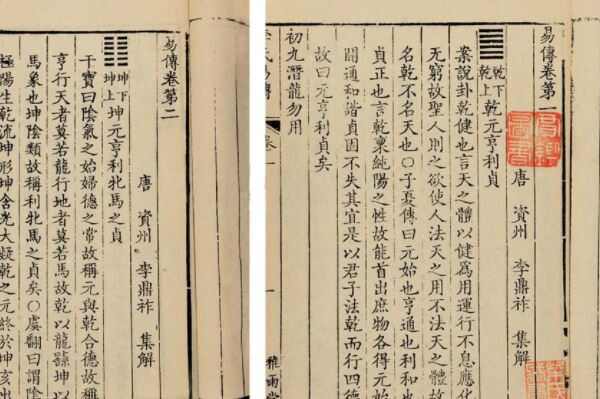 易傳卷第一
唐 資州 李鼎祚 集解
乾下
乾上
乾元亨利貞
案說卦乾健也言天之體以健爲用運行不息應化
无窮故聖人則之欲使人法天之用不法天之體故
名乾不名天也〇子夏傳曰元始也亨通也利和也
貞正也言乾稟純陽之性故能首出庶物各得元始
開通和諧貞固不失其宜是以君子法乾而行四德
故曰元亨利貞矣
初九潛龍勿用
李氏易傳 卷一 雅雨堂
易傳卷第二
唐 資州 李鼎祚 集解
坤下
坤上
坤元亨利牝馬之貞
干寶曰陰氣之始婦德之常故稱元與乾合德故稱
亨行天者莫若龍行地者莫若馬故乾以龍繇坤以
馬象也坤陰類故稱利牝馬之貞矣〇虞翻曰謂陰
極陽生乾流坤形坤含光大凝乾之元終於坤亥出